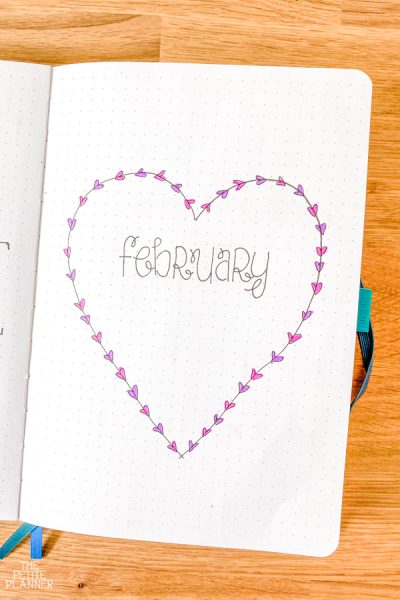 february
THE
PETITE
PLANNER